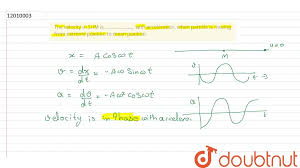 12010003
The velocity of SHM is ________ with acceleration, when particle is moving from extreme position to mean position
x = A cos ωt
v = dx/dt = -Aω sin ωt
a = dv/dt = -Aω² cos ωt
velocity is in Phase with acceleration
M
v
t
a
doubtnut